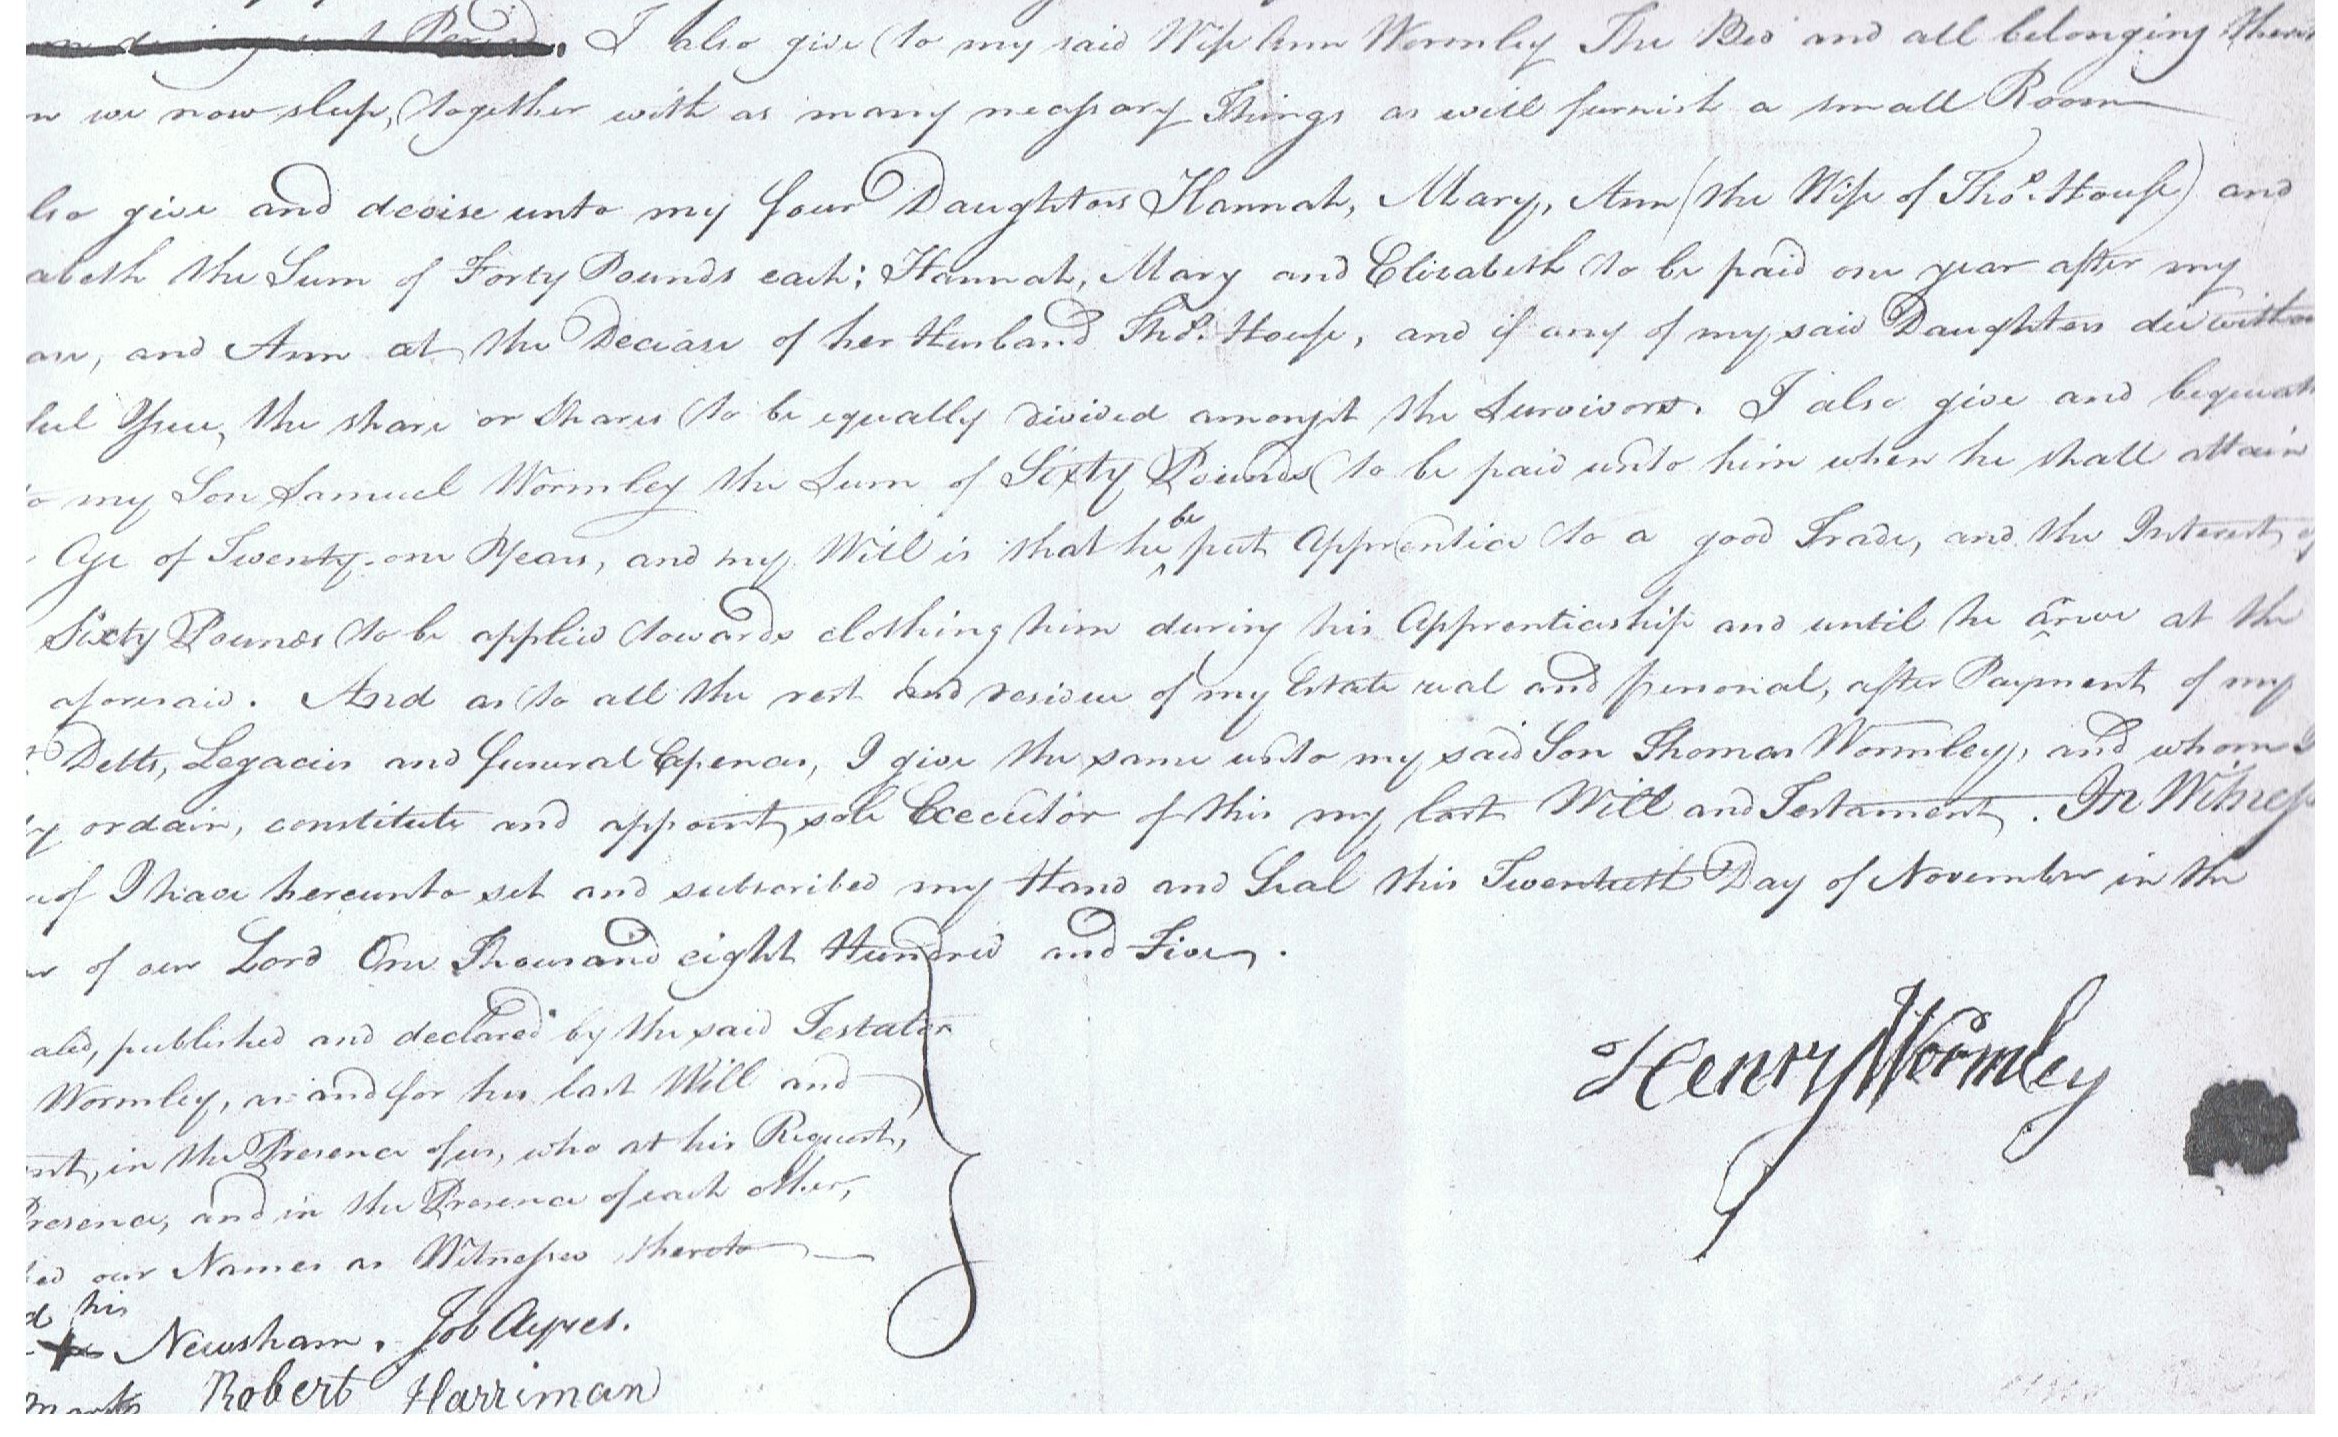 I also give to my said Wife Ann Wormley The Bed and all belonging
we now sleep, together with as many necessary Things as will furnish a small Room
give and devise unto my four Daughters Hannah, Mary, Ann (the Wife of Thos. House) and
abeth the Sum of Forty Pounds each; Hannah, Mary and Elizabeth to be paid one year after my
and Ann at the Decease of her Husband Thos. House, and if any of my said Daughters die
Issue, the share or shares to be equally divided amongst the Survivors. I also give and bequeath
my Son Samuel Wormley the Sum of Sixty Pounds to be paid unto him when he shall attain
Age of Twenty-one Years, and my Will is that he be put Apprentice to a good Trade, and the Interest of
Sixty Pounds to be applied towards clothing him during his Apprenticeship and until he arrive at the
aforesaid. And as to all the rest and residue of my Estate real and personal, after Payment of my
Debts, Legacies and funeral Expences, I give the same unto my said Son Thomas Wormley, and whom I
ordain, constitute and appoint sole Executor of this my last Will and Testament. In Witness
of I have hereunto set and subscribed my Hand and Seal this Twentieth Day of November in the
of our Lord One Thousand eight Hundred and Five.
Henry Wormley
aled, published and declared by the said Testator
Wormley, as and for his last Will and
ent, in the Presence of us, who at his Request,
Presence, and in the Presence of each other,
bed our Names as Witnesses thereto
his
Newsham. Job Ayres.
mark Robert Harriman